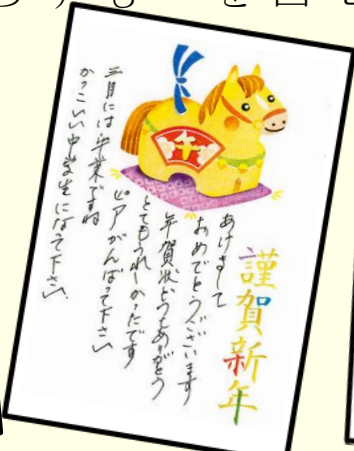 謹賀新年
あけまして
おめでとうございます
年賀状どうもありがとう
とてもうれしかったです
ピアがんばって下さい
三月には卒業ですね
かっこいい中学生になって下さい.
午